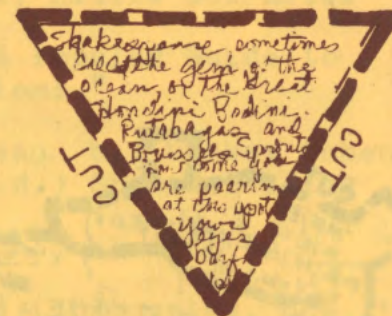 Shakesperanne, sometimes
called the gem o' the
ocean, or the Great
Houdini Bodini.
Rutabagas and
Brussels Sprouts
now some you
are pearin
at the wort
yowel
eyes
barf
CUT
CUT